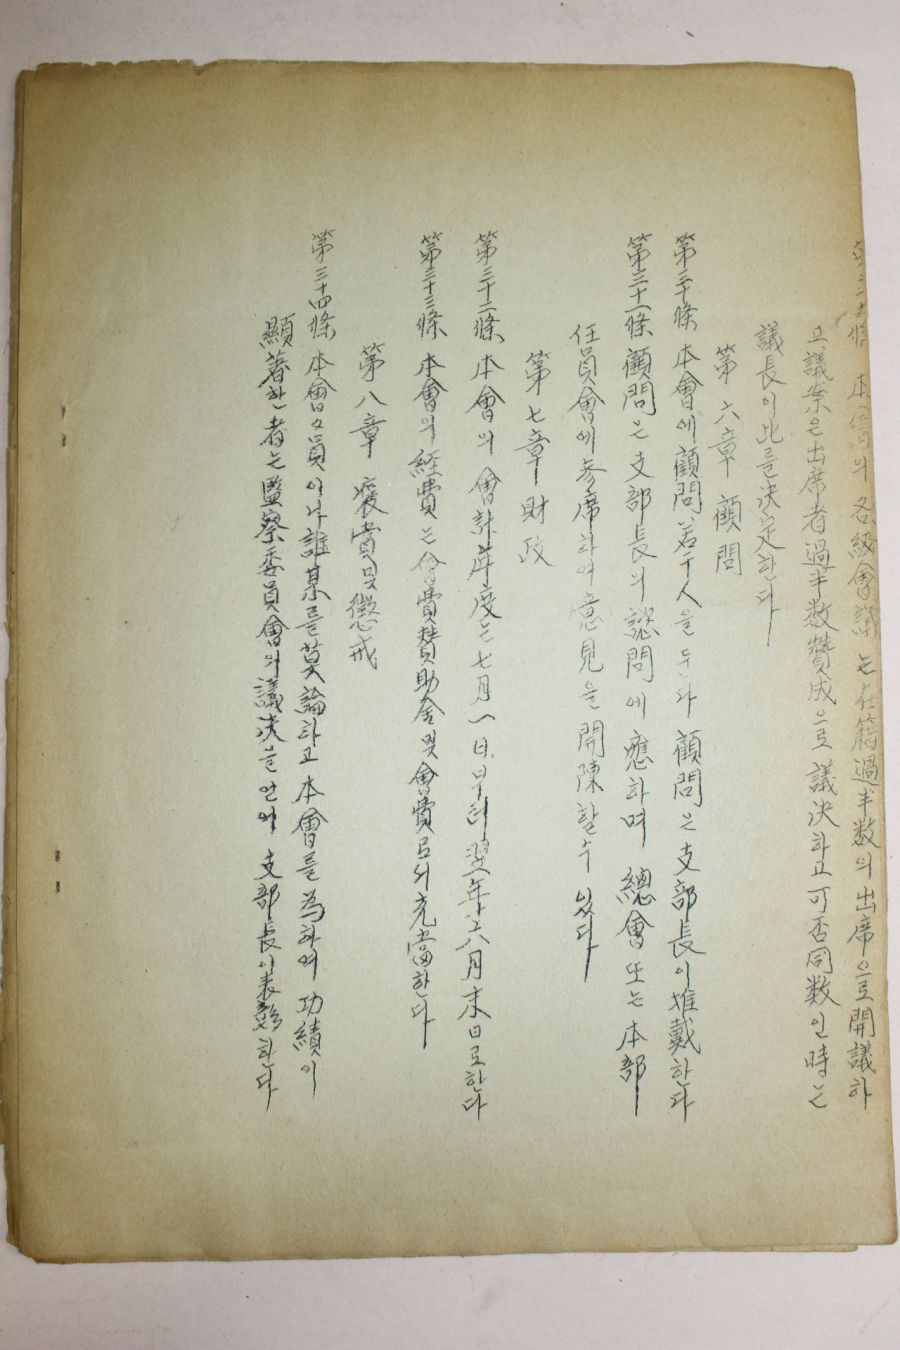 第二十九條 本會의 各級會議는 在籍過半数의 出席으로 開議하
고 議案은 出席者過半数贊成으로 議決하고 可否同数인 時는
議長이 此를 決定한다
第六章 顧問
第三十條 本會에 顧問 若干人을 두나 顧問은 支部長이 推戴한다
第三十一條 顧問은 支部長의 諮問에 應하며 總會 또는 本部
任員會에 参席하여 意見을 開陳할 수 있다
第七章 財政
第三十二條 本會의 會計年度는 七月一日부터 翌年 六月末日로 한다
第三十三條 本會의 経費는 會費賛助金 및 會費로서 充當한다
第八章 褒賞 및 懲戒
第三十四條 本會々員이나 誰某를 莫論하고 本會를 為하여 功績이
顯著한 者는 監察委員會의 議決을 얻어 支部長이 表彰한다